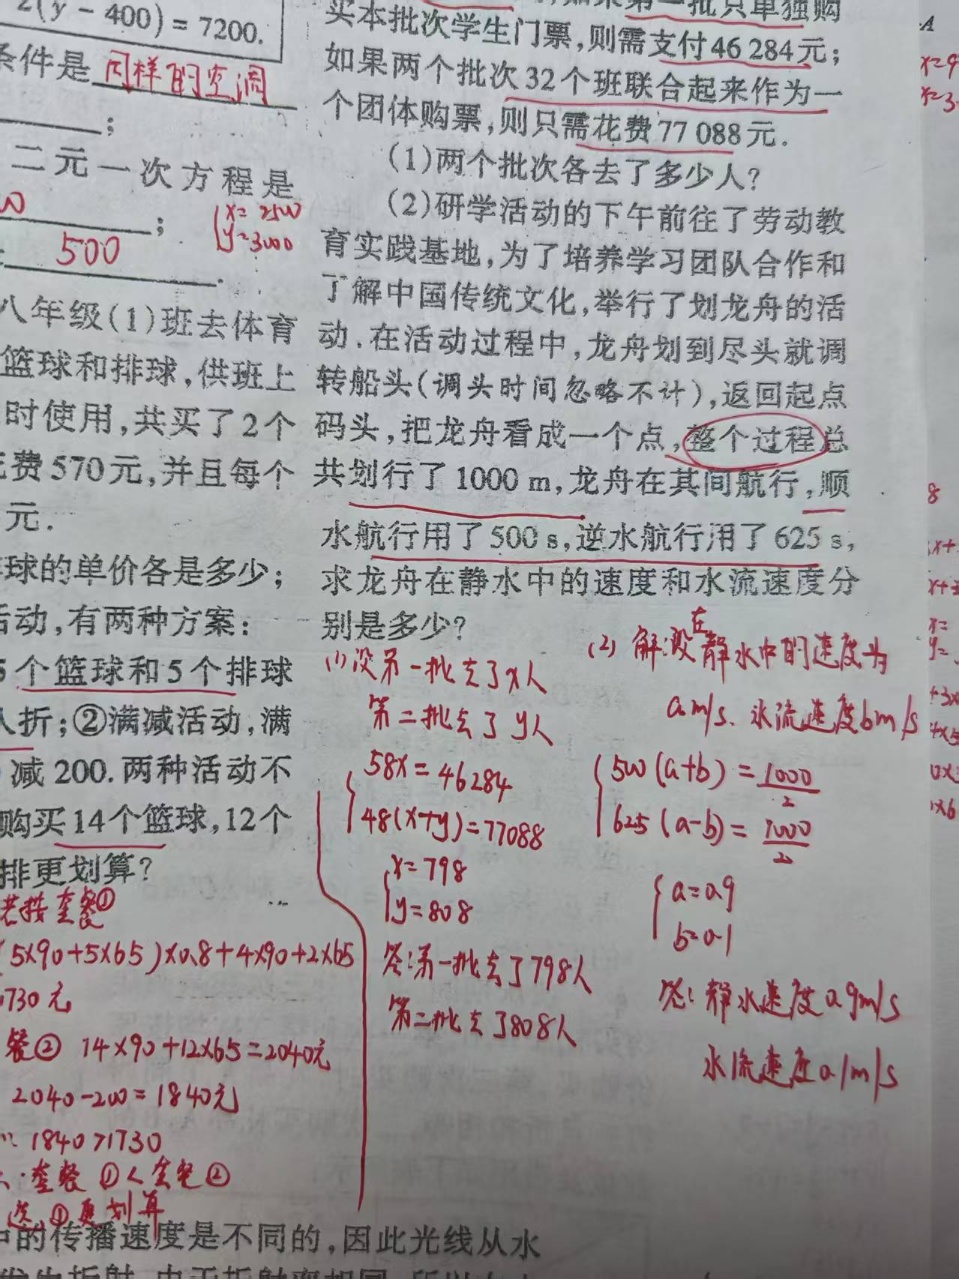 2(y-400)=7200.
条件是 同样的空调
;
二元一次方程是
;
{x=2500
y=3000
500
.
八年级(1)班去体育
篮球和排球,供班上
时使用,共买了2个
费570元,并且每个
元.
球的单价各是多少;
活动,有两种方案:
5个篮球和5个排球
八折;②满减活动,满
减200.两种活动不
购买14个篮球,12个
排更划算?
若按套餐①
(5×90+5×65)×0.8+4×90+2×65
1730元
餐② 14×90+12×65=2040元
2040-200=1840元
∵1840>1730
∴套餐①<套餐②
选①更划算
中的传播速度是不同的,因此光线从水
买本批次学生门票,则需支付46 284元;
如果两个批次32个班联合起来作为一
个团体购票,则只需花费77 088元.
(1)两个批次各去了多少人?
(2)研学活动的下午前往了劳动教
育实践基地,为了培养学习团队合作和
了解中国传统文化,举行了划龙舟的活
动.在活动过程中,龙舟划到尽头就调
转船头(调头时间忽略不计),返回起点
码头,把龙舟看成一个点,整个过程总
共划行了1000 m,龙舟在其间航行,顺
水航行用了500 s,逆水航行用了625 s,
求龙舟在静水中的速度和水流速度分
别是多少?
(1)设第一批去了x人
第二批去了y人
{58x=46284
48(x+y)=77088
{x=798
y=808
答:第一批去了798人
第二批去了808人
(2)解:设在静水中的速度为
a m/s.水流速度b m/s
{500(a+b)=1000/2
625(a-b)=1000/2
{a=0.9
b=0.1
答:静水速度0.9m/s
水流速度0.1m/s
A